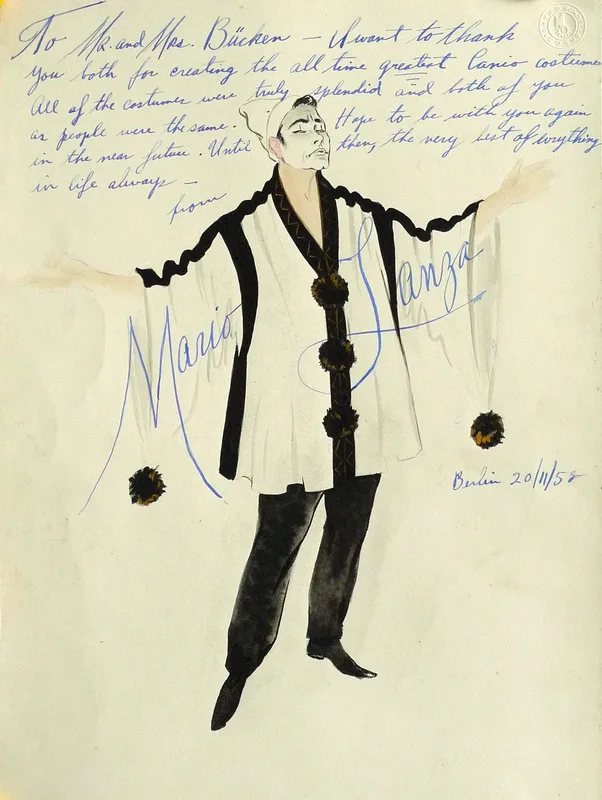 To Mr. and Mrs. Bücken – I want to thank
you both for creating the all time greatest Canio costume
All of the costumes were truly splendid and both of you
as people were the same. Hope to be with you again
in the near future. Until then, the very best of everything
in life always –
from
Mario Lanza
Berlin 20/11/58